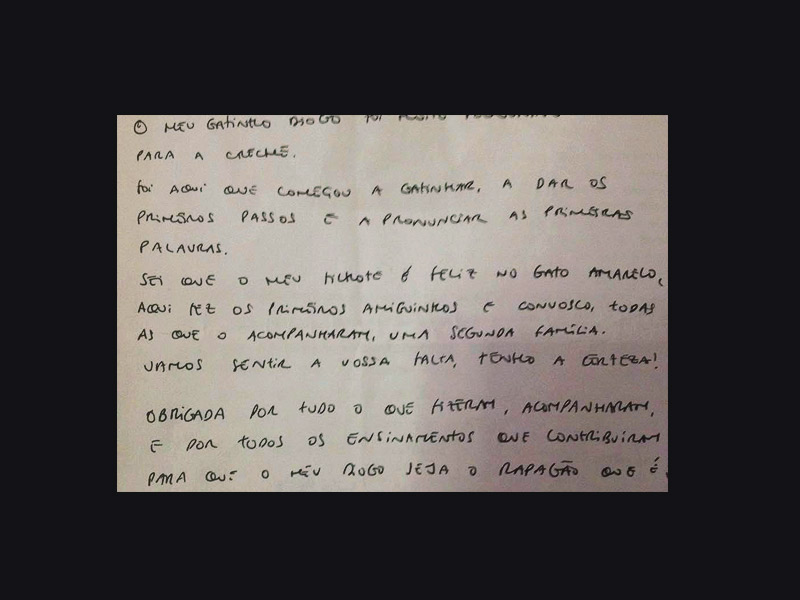 O MEU GATINHO DIOGO FOI MUITO PEQUENINO
PARA A CRECHE.
FOI AQUI QUE COMEÇOU A GATINHAR, A DAR OS
PRIMEIROS PASSOS E A PRONUNCIAR AS PRIMEIRAS
PALAVRAS.
SEI QUE O MEU FILHOTE É FELIZ NO GATO AMARELO,
AQUI FEZ OS PRIMEIROS AMIGUINHOS E CONVOSCO, TODAS
AS QUE O ACOMPANHARAM, UMA SEGUNDA FAMÍLIA.
VAMOS SENTIR A VOSSA FALTA, TENHO A CERTEZA!
OBRIGADA POR TUDO O QUE FIZERAM, ACOMPANHARAM,
E POR TODOS OS ENSINAMENTOS QUE CONTRIBUIRAM
PARA QUE O MEU DIOGO SEJA O RAPAGÃO QUE É.